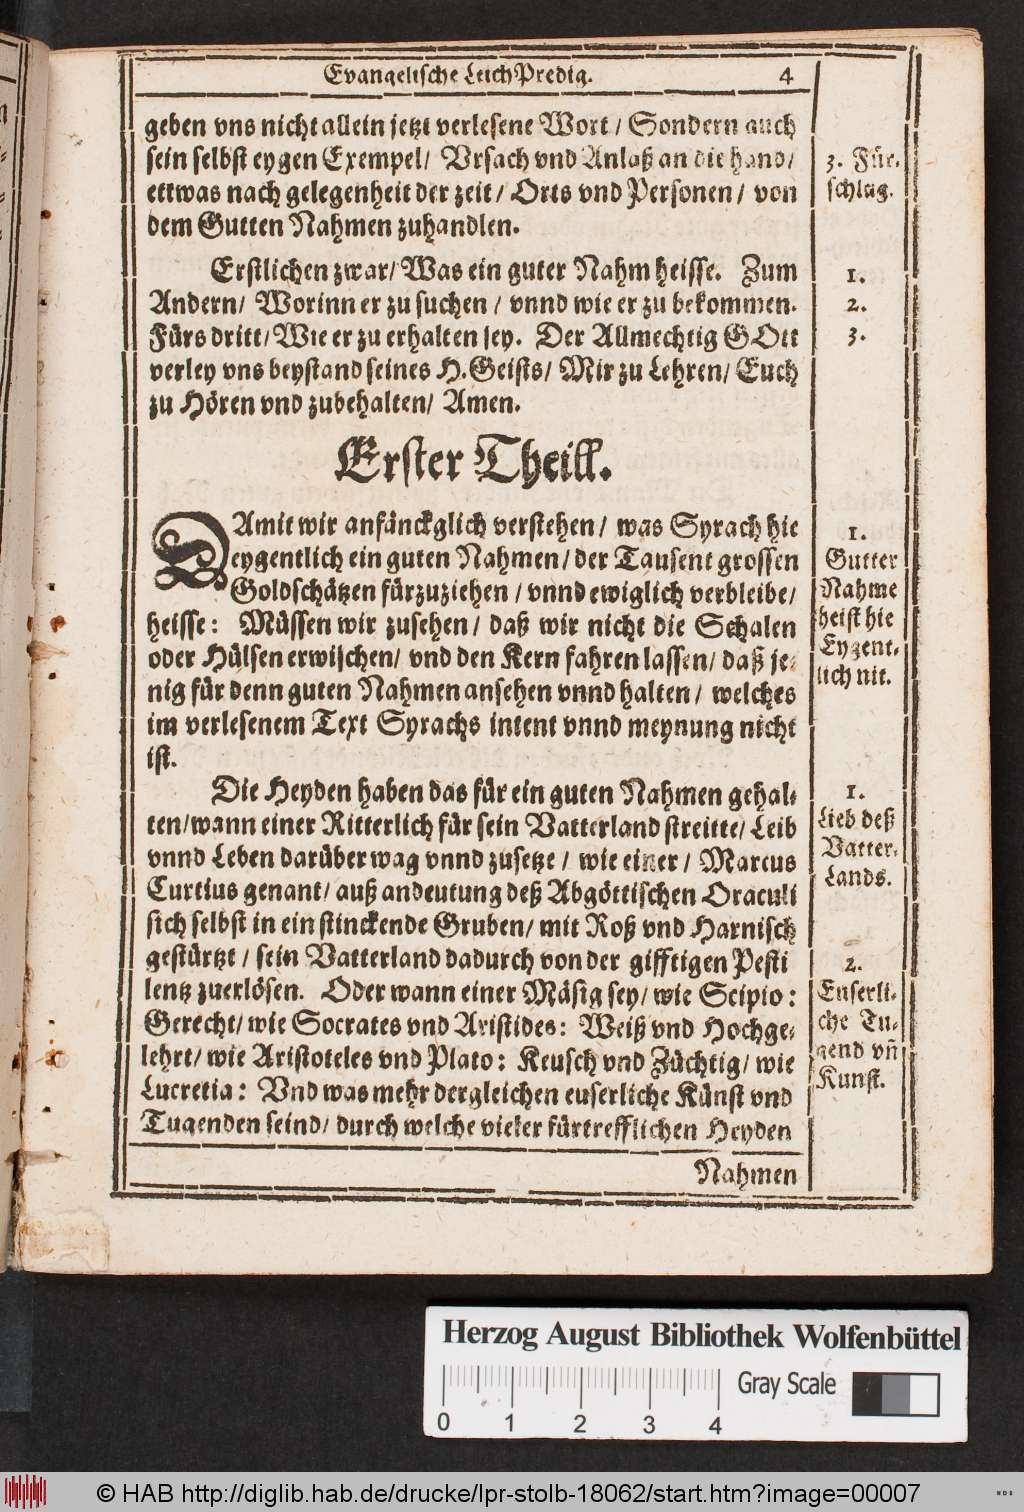 Evangelische LeichPredig. 4
geben vns nicht allein jetzt verlesene Wort / Sondern auch
sein selbst eygen Exempel / Vrsach vnd Anlaß an die hand /
ettwas nach gelegenheit der zeit / Orts vnd Personen / von
dem Gutten Nahmen zuhandlen.
3. Für-
schlag.
Erstlichen zwar / Was ein guter Nahm heisse. Zum
Andern / Worinn er zu suchen / vnnd wie er zu bekommen.
Fürs dritt / Wie er zu erhalten sey. Der Allmechtig GOtt
verley vns beystand seines H. Geists / Mir zu Lehren / Euch
zu Hören vnd zubehalten / Amen.
1.
2.
3.
Erster Theill.
DAmit wir anfänckglich verstehen / was Syrach hie
eygentlich ein guten Nahmen / der Tausent grossen
Goldschätzen fürzuziehen / vnnd ewiglich verbleibe /
heisse: Müssen wir zusehen / daß wir nicht die Schalen
oder Hülsen erwischen / vnd den Kern fahren lassen / daß je-
nig für denn guten Nahmen ansehen vnnd halten / welches
im verlesenem Text Syrachs intent vnnd meynung nicht
ist.
1.
Gutter
Nahme
heist hie
Eygent-
lich nit.
Die Heyden haben das für ein guten Nahmen gehal-
ten / wann einer Ritterlich für sein Vatterland streitte / Leib
vnnd Leben darüber wag vnnd zusetze / wie einer / Marcus
Curtius genant / auß andeutung deß Abgöttischen Oraculi
sich selbst in ein stinckende Gruben / mit Roß vnd Harnisch
gestürtzt / sein Vatterland dadurch von der gifftigen Pesti
lentz zuerlösen. Oder wann einer Mäsig sey / wie Scipio:
Gerecht / wie Socrates vnd Aristides: Weiß vnd Hochge-
lehrt / wie Aristoteles vnd Plato: Keusch vnd Züchtig / wie
Lucretia: Vnd was mehr dergleichen euserliche Künst vnd
Tugenden seind / durch welche vieler fürtrefflichen Heyden
Nahmen
1.
Lieb deß
Vatter-
Lands.
2.
Euserli-
che Tu-
gend vñ
Kunst.
Herzog August Bibliothek Wolfenbüttel
Gray Scale
0 1 2 3 4
© HAB http://diglib.hab.de/drucke/lpr-stolb-18062/start.htm?image=00007